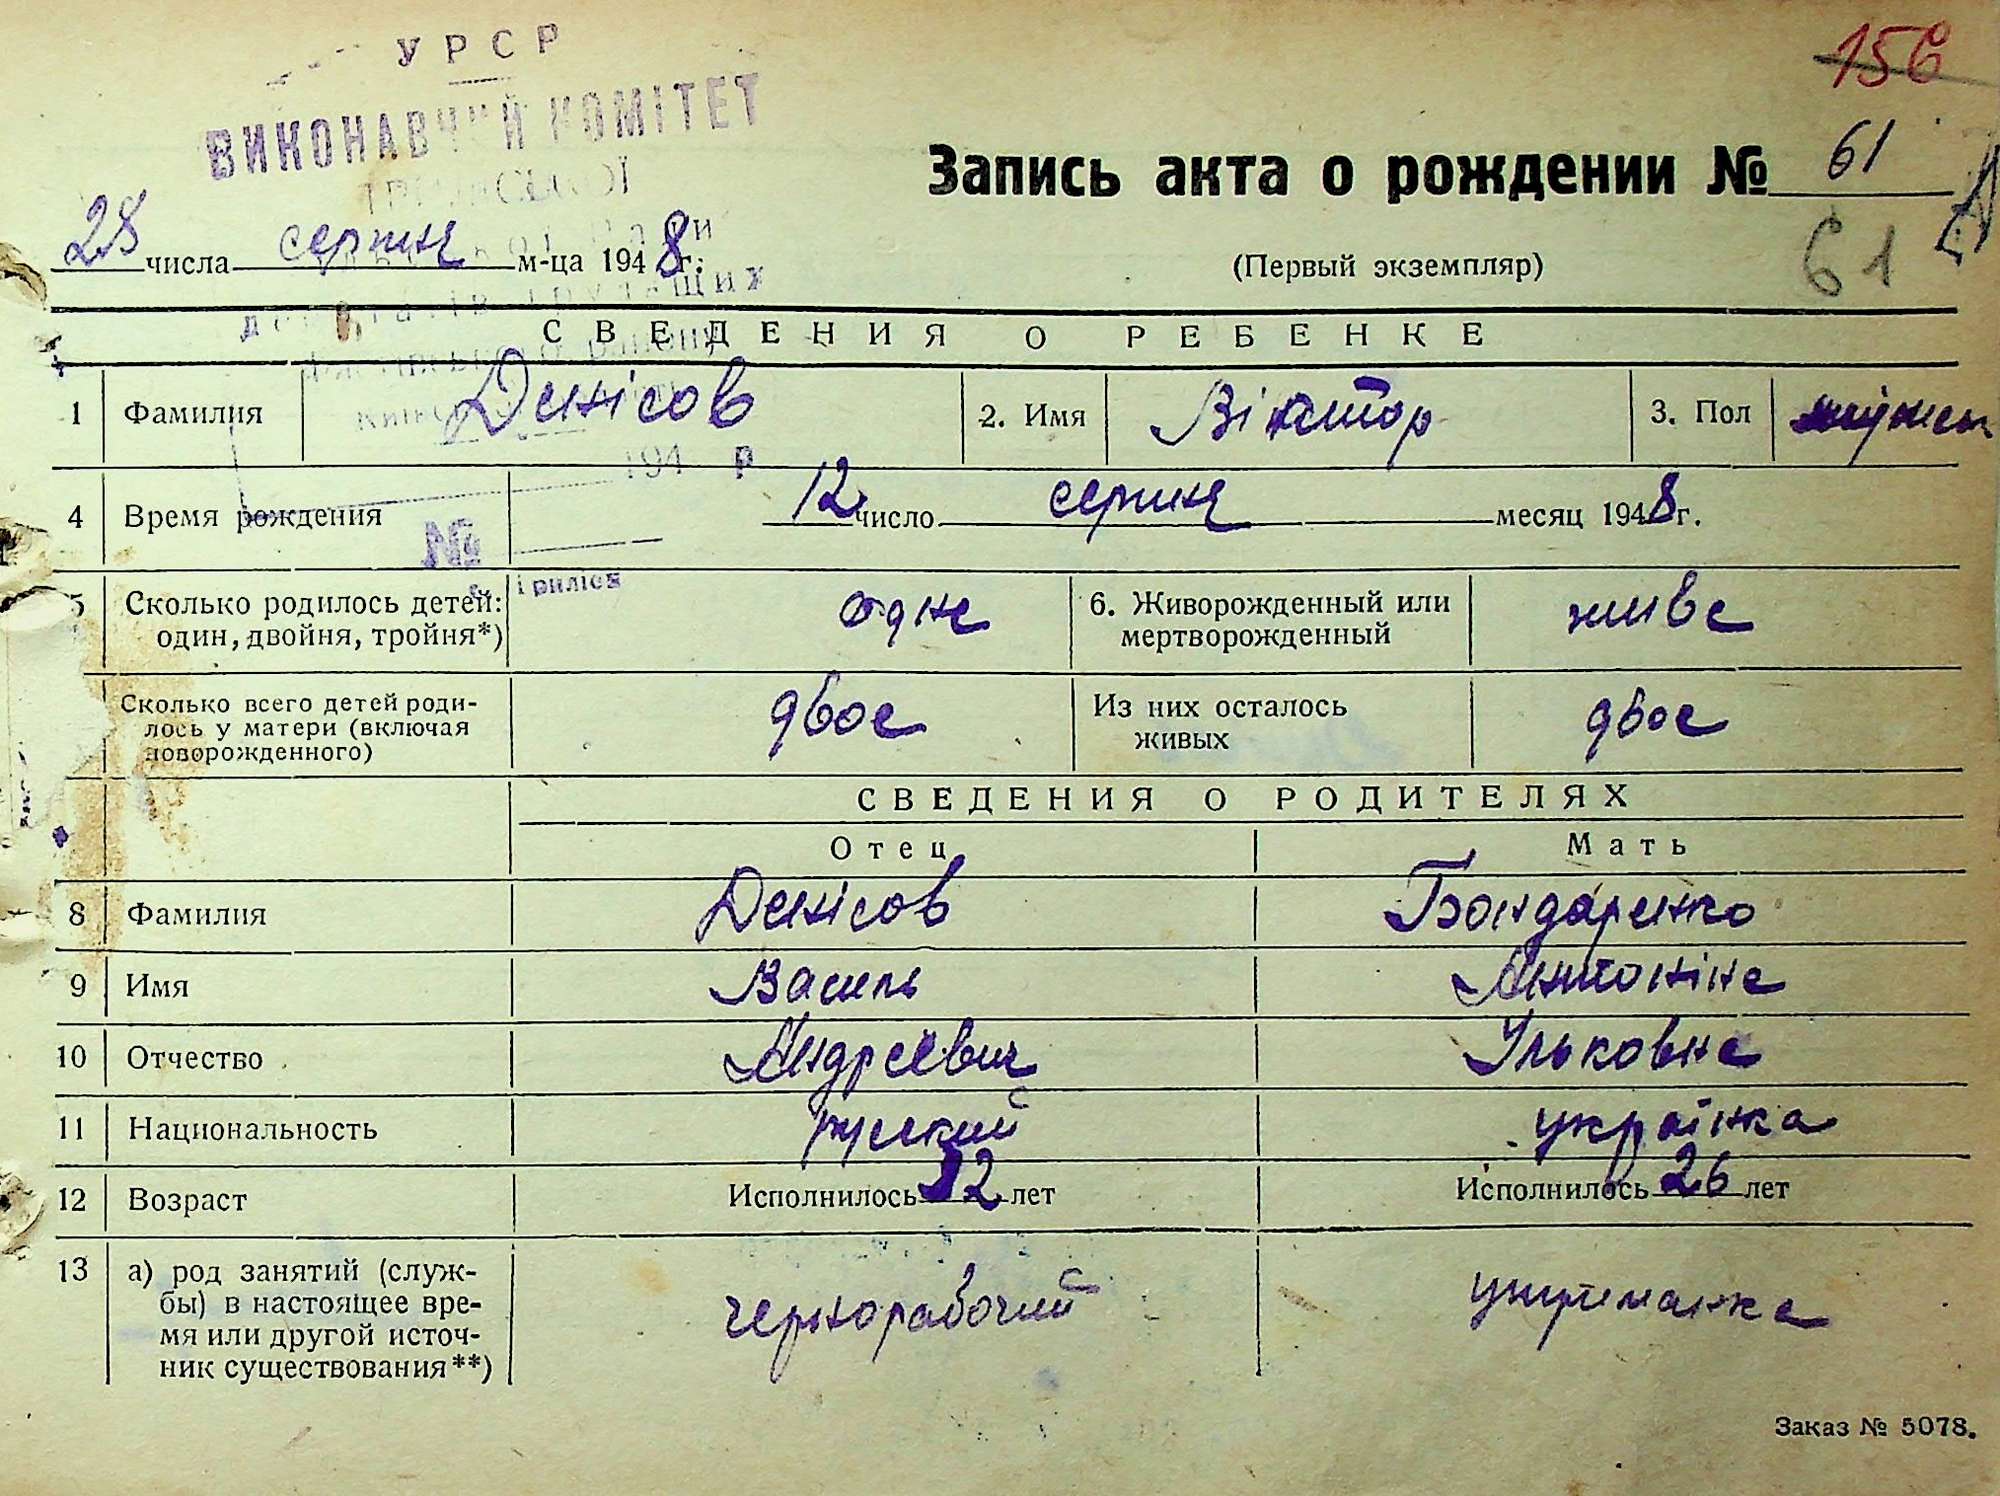 УРСР
ВИКОНАВЧИЙ КОМІТЕТ
156
Запись акта о рождении № 61
28 числа серпня м-ца 1948 г.
(Первый экземпляр)
61
СВЕДЕНИЯ О РЕБЕНКЕ
1 Фамилия Денісов 2. Имя Віктор 3. Пол
194 р
4 Время рождения 12 число серпня месяц 1948 г.
№
5 Сколько родилось детей: один, двойня, тройня*) одне 6. Живорожденный или мертворожденный живе
Сколько всего детей родилось у матери (включая новорожденного) двое Из них осталось живых двое
СВЕДЕНИЯ О РОДИТЕЛЯХ
Отец Мать
8 Фамилия Денісов Бондаренко
9 Имя Василь Антоніна
10 Отчество Андреевич Ульковна
11 Национальность русский українка
12 Возраст Исполнилось 32 лет Исполнилось 26 лет
13 а) род занятий (служ-
бы) в настоящее вре-
мя или другой источ-
ник существования**) чернорабочий утриманка
Заказ № 5078.